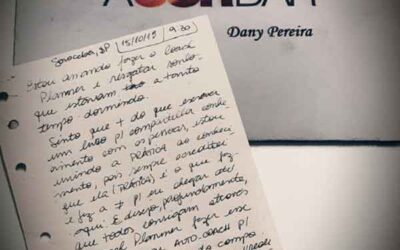 ACORDAR
Dany Pereira
Sorocaba, SP 15/10/19 9:30
Estou amando fazer o Coach
Planner e resgatar sonhos
que estavam a tanto
tempo dormindo.
Sinto que + do que escrever
um livro p/ compartilhar conhe
cimento com as pessoas, estou
unindo a PRÁTICA ao conheci
mento, pois sempre acreditei
que ela (PRÁTICA) é o que fez
e faz a ≠ p/ eu chegar até
aqui. E desejo, profundamente,
que todos consigam através
Planner fazer esse
AUTO-COACH p/
do campo